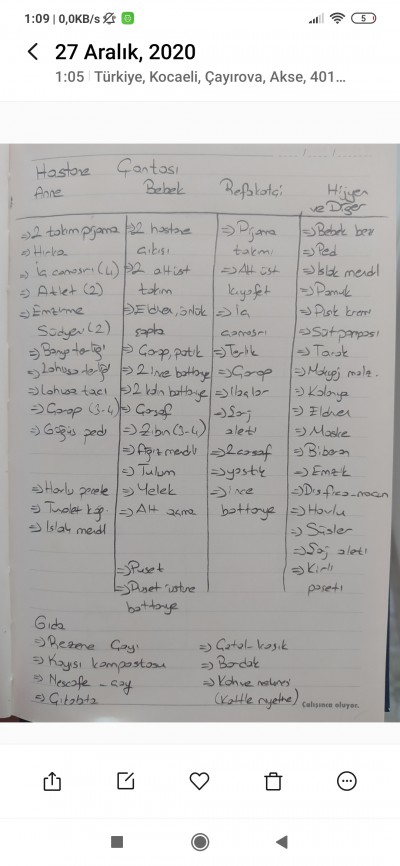 1:09 | 0,0KB/s
5
27 Aralık, 2020
1:05 Türkiye, Kocaeli, Çayırova, Akse, 401...
Hastane Çantası
Anne Bebek Refakatçi Hijyen ve Diğer
⇒ 2 takım pijama
⇒ Hırka
⇒ İç çamaşırı (4)
⇒ Atlet (2)
⇒ Emzirme
Sütyeni (2)
⇒ Banyo terliği
⇒ Lohusa terliği
⇒ Lohusa tacı
⇒ Çorap (3-4)
⇒ Göğüs pedi
⇒ Havlu peçete
⇒ Tuvalet kağ.
⇒ Islak mendil
⇒ 2 hastane
çıkışı
⇒ 2 alt üst
takım
⇒ Eldiven, önlük
şapka
⇒ Çorap, patik
⇒ 2 ince battaniye
⇒ 2 kalın battaniye
⇒ Çarşaf
⇒ Zıbın (3-4)
⇒ Ağız mendili
⇒ Tulum
⇒ Yelek
⇒ Alt açma
⇒ Puset
⇒ Puset üstüne
battaniye
⇒ Pijama
takımı
⇒ Alt üst
kıyafet
⇒ İç
çamaşırı
⇒ Terlik
⇒ Çorap
⇒ İlaçlar
⇒ Şarj
aleti
⇒ 2 çarşaf
⇒ yastık
⇒ ince
battaniye
⇒ Bebek bezi
⇒ Ped
⇒ Islak mendil
⇒ Pamuk
⇒ Pişik kremi
⇒ Süt pompası
⇒ Tarak
⇒ Makyaj malz.
⇒ Kolonya
⇒ Eldiven
⇒ Maske
⇒ Biberon
⇒ Emzik
⇒ Havlu
⇒ Süsler
⇒ Şarj aleti
⇒ Kirli
poşeti
Gıda
⇒ Rezene Çayı
⇒ Kayısı kompostosu
⇒ Nescafe - çay
⇒ Çikolata
⇒ Çatal-kaşık
⇒ Bardak
⇒ Kahve makinesi
(Kettle niyetine)
Çalışınca oluyor.